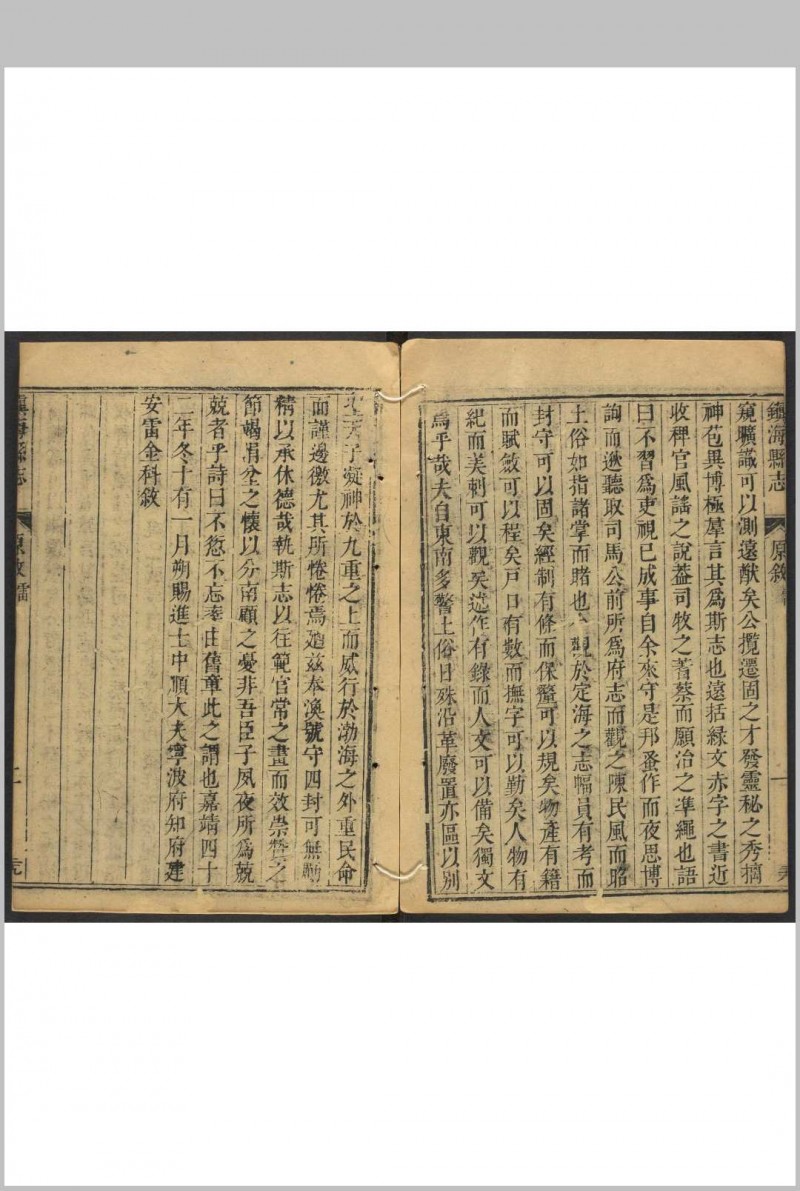 鎮海縣志
原敘
一
窺曠識可以測遠猷矣公攬遷固之才發靈秘之秀摛
神苞異博極羣言其為斯志也遠括緑文赤字之書近
收稗官風謠之說葢司牧之蓍蔡而願治之準繩也語
曰不習為吏視已成事自余來守是邦蚤作而夜思博
詢而逖聽取司馬公前所為府志而觀之陳民風而昭
土俗如指諸掌而賭也 觀於定海之志幅員有考而
封守可以固矣經制有條而保釐可以規矣物產有籍
而賦斂可以程矣戸口有數而撫字可以勤矣人物有
紀而美刺可以觀矣述作有錄而人文可以備矣獨文
為乎哉夫自東南多警土俗日殊沿革廢置亦區以別
天子凝神於九重之上而威行於渤海之外重民命
而謹邊徼尤其所惓惓焉廼兹奉渙號守四封可無勵
精以承休德哉執斯志以往範官常之畫而效崇墾之
節竭涓埃之懷以分南顧之憂非吾臣子夙夜所為兢
兢者乎詩曰不愆不忘率由舊章此之謂也嘉靖四十
二年冬十有一月朔賜進士中順大夫寧波府知府建
安雷金科敘
鎮海縣志
原敘
二